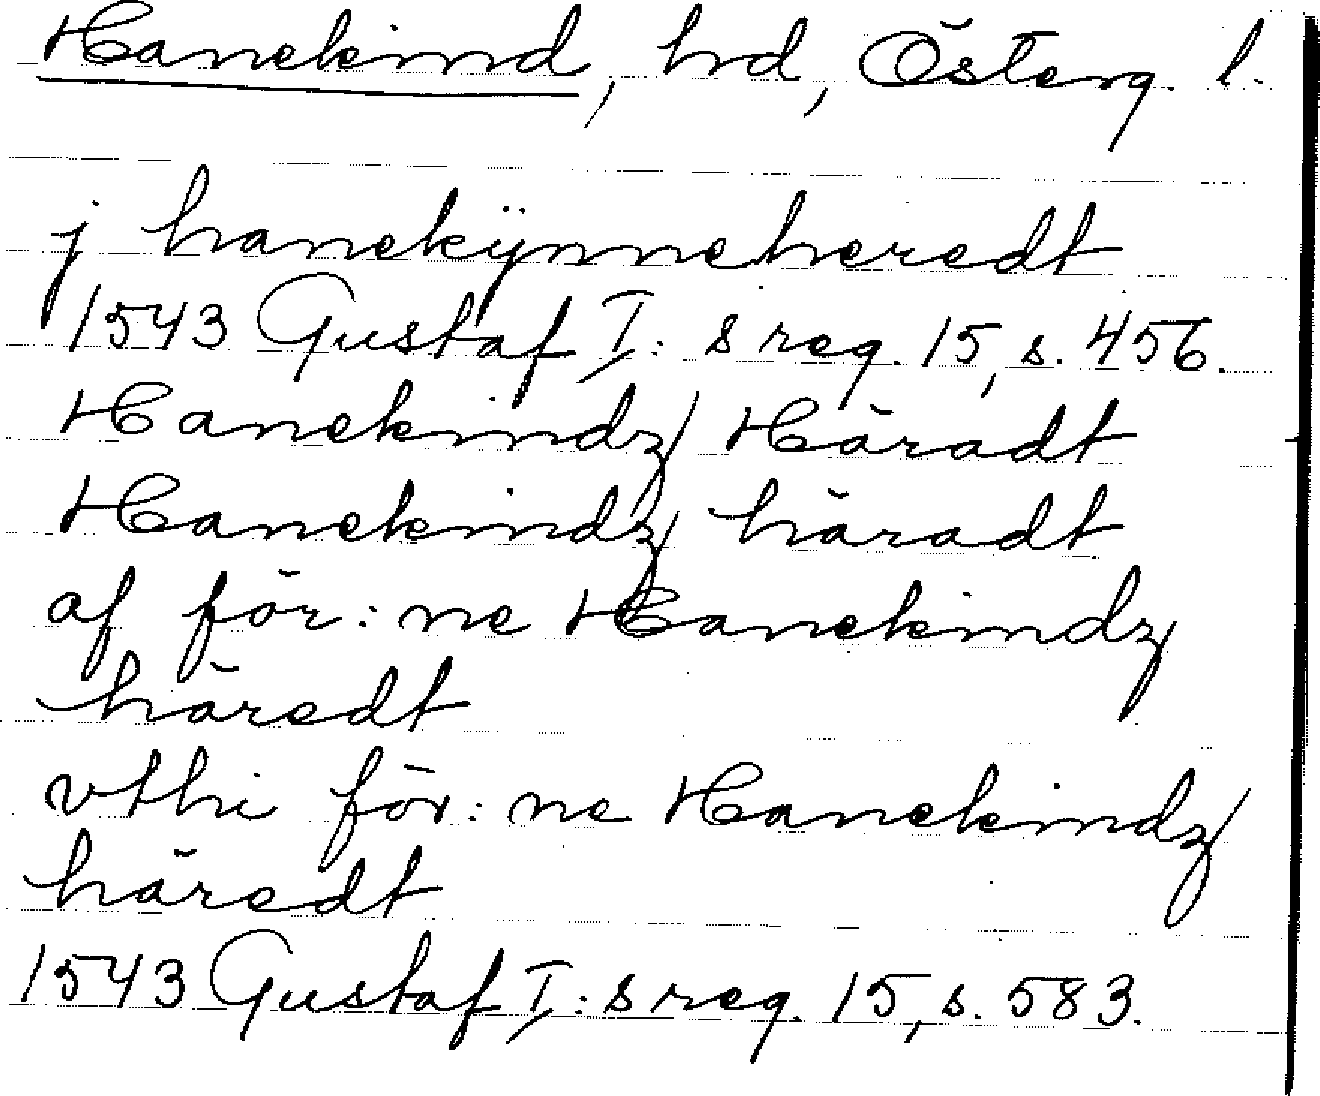 Hanekind, hd, Österg. l.
j hanekÿnneheredt
1543 Gustaf I:s reg. 15, s. 456.
Hanekindz Häradt
Hanekindz häradt
af för:ne Hanekindz
häredt
vthi för:ne Hanekindz
häredt
1543 Gustaf I:s reg. 15, s. 583.